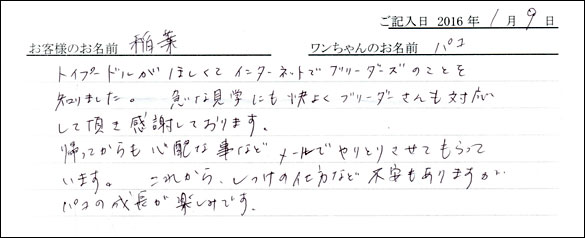 ご記入日 2016 年 1 月 9 日
お客様のお名前 稲葉 ワンちゃんのお名前 パコ
トイプードルがほしくてインターネットでブリーダーズのことを
知りました。 急な見学にも快よくブリーダーさんも対応
して頂き感謝しております。
帰ってからも心配な事などメールでやりとりさせてもらって
います。 これから、しつけの仕方など不安もありますが
パコの成長が楽しみです。